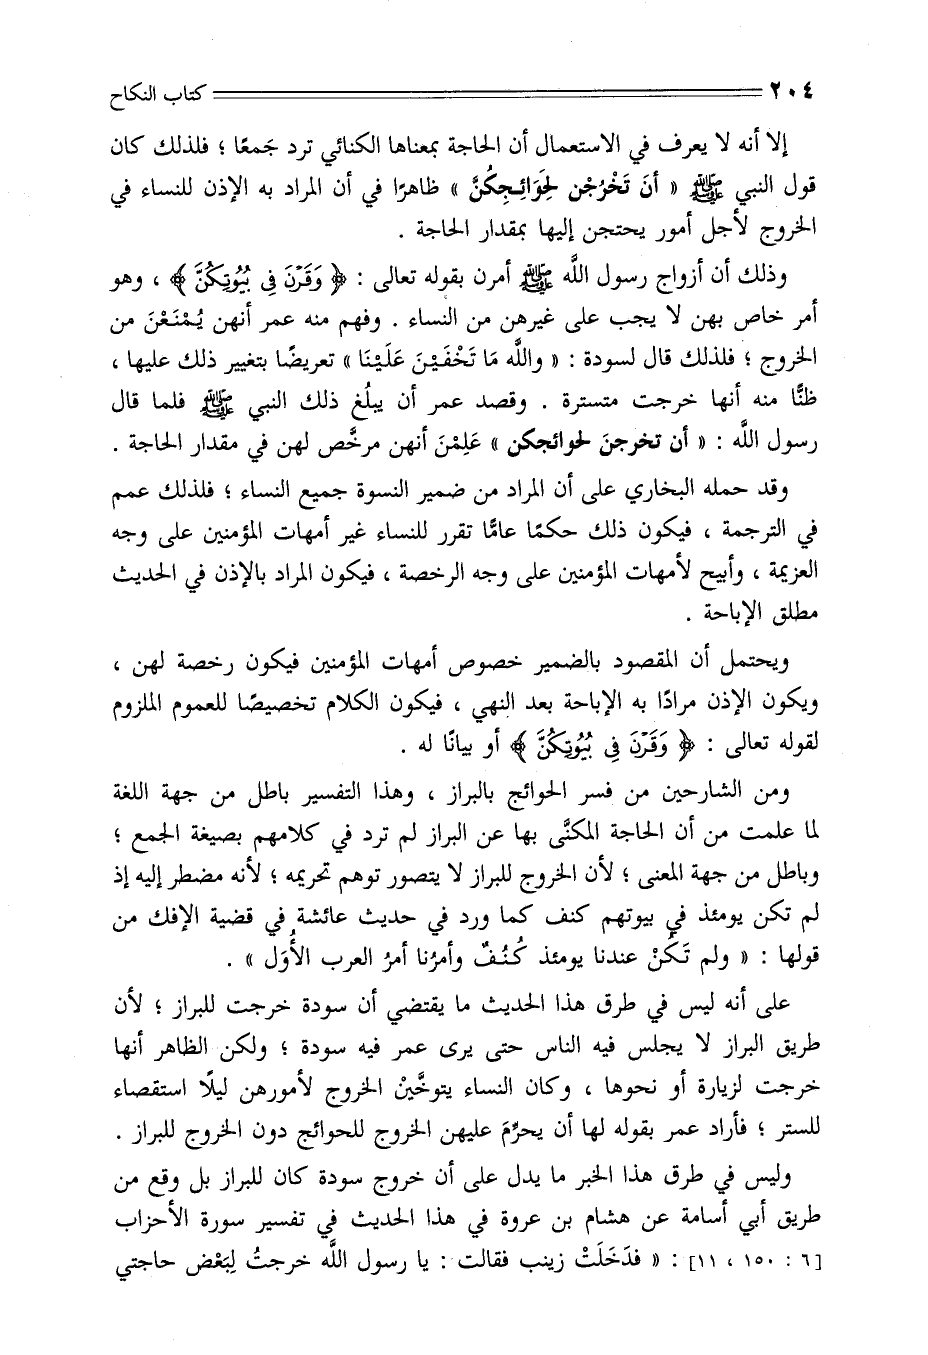 ٢٠٤ كتاب النكاح
إلا أنه لا يعرف في الاستعمال أن الحاجة بمعناها الكنائي ترد جَمعًا ؛ فلذلك كان
قول النبي ﷺ « أنَ تَخْرُجْن لِحَوَائِجِكُنَّ » ظاهرًا في أن المراد به الإذن للنساء في
الخروج لأجل أمور يحتجن إليها بمقدار الحاجة .
وذلك أن أزواج رسول اللَّه ﷺ أمرن بقوله تعالى : ﴿ وَقَرْنَ فِى بُيُوتِكُنَّ ﴾ ، وهو
أمر خاص بهن لا يجب على غيرهن من النساء . وفهم منه عمر أنهن يُمْنَعْنَ من
الخروج ؛ فلذلك قال لسودة : « واللَّه مَا تَخْفَيْنَ عَلَيْنَا » تعريضًا بتغيير ذلك عليها ،
ظنًّا منه أنها خرجت متسترة . وقصد عمر أن يبلُغ ذلك النبي ﷺ فلما قال
رسول اللَّه : « أن تخرجنَ لحوائجكن » عَلِمْنَ أنهن مرخَّص لهن في مقدار الحاجة .
وقد حمله البخاري على أن المراد من ضمير النسوة جميع النساء ؛ فلذلك عمم
في الترجمة ، فيكون ذلك حكمًا عامًّا تقرر للنساء غير أمهات المؤمنين على وجه
العزيمة ، وأبيح لأمهات المؤمنين على وجه الرخصة ، فيكون المراد بالإذن في الحديث
مطلق الإباحة .
ويحتمل أن المقصود بالضمير خصوص أمهات المؤمنين فيكون رخصة لهن ،
ويكون الإذن مرادًا به الإباحة بعد النهي ، فيكون الكلام تخصيصًا للعموم الملزوم
لقوله تعالى : ﴿ وَقَرْنَ فِى بُيُوتِكُنَّ ﴾ أو بيانًا له .
ومن الشارحين من فسر الحوائج بالبراز ، وهذا التفسير باطل من جهة اللغة
لما علمت من أن الحاجة المكنَّى بها عن البراز لم ترد في كلامهم بصيغة الجمع ؛
وباطل من جهة المعنى ؛ لأن الخروج للبراز لا يتصور توهم تحريمه ؛ لأنه مضطر إليه إذ
لم تكن يومئذ في بيوتهم كنف كما ورد في حديث عائشة في قضية الإفك من
قولها : « ولم تَكُنْ عندنا يومئذ كُنُفٌ وأمرُنا أمرُ العرب الأُوَل » .
على أنه ليس في طرق هذا الحديث ما يقتضي أن سودة خرجت للبراز ؛ لأن
طريق البراز لا يجلس فيه الناس حتى يرى عمر فيه سودة ؛ ولكن الظاهر أنها
خرجت لزيارة أو نحوها ، وكان النساء يتوخَّيْنَ الخروج لأمورهن ليلًا استقصاء
للستر ؛ فأراد عمر بقوله لها أن يحرِّمَ عليهن الخروج للحوائج دون الخروج للبراز .
وليس في طرق هذا الخبر ما يدل على أن خروج سودة كان للبراز بل وقع من
طريق أبي أسامة عن هشام بن عروة في هذا الحديث في تفسير سورة الأحزاب
[٦ : ١٥٠ ، ١١] : « فدَخَلَتْ زينب فقالت : يا رسول اللَّه خرجتُ لِبَعْض حاجتي